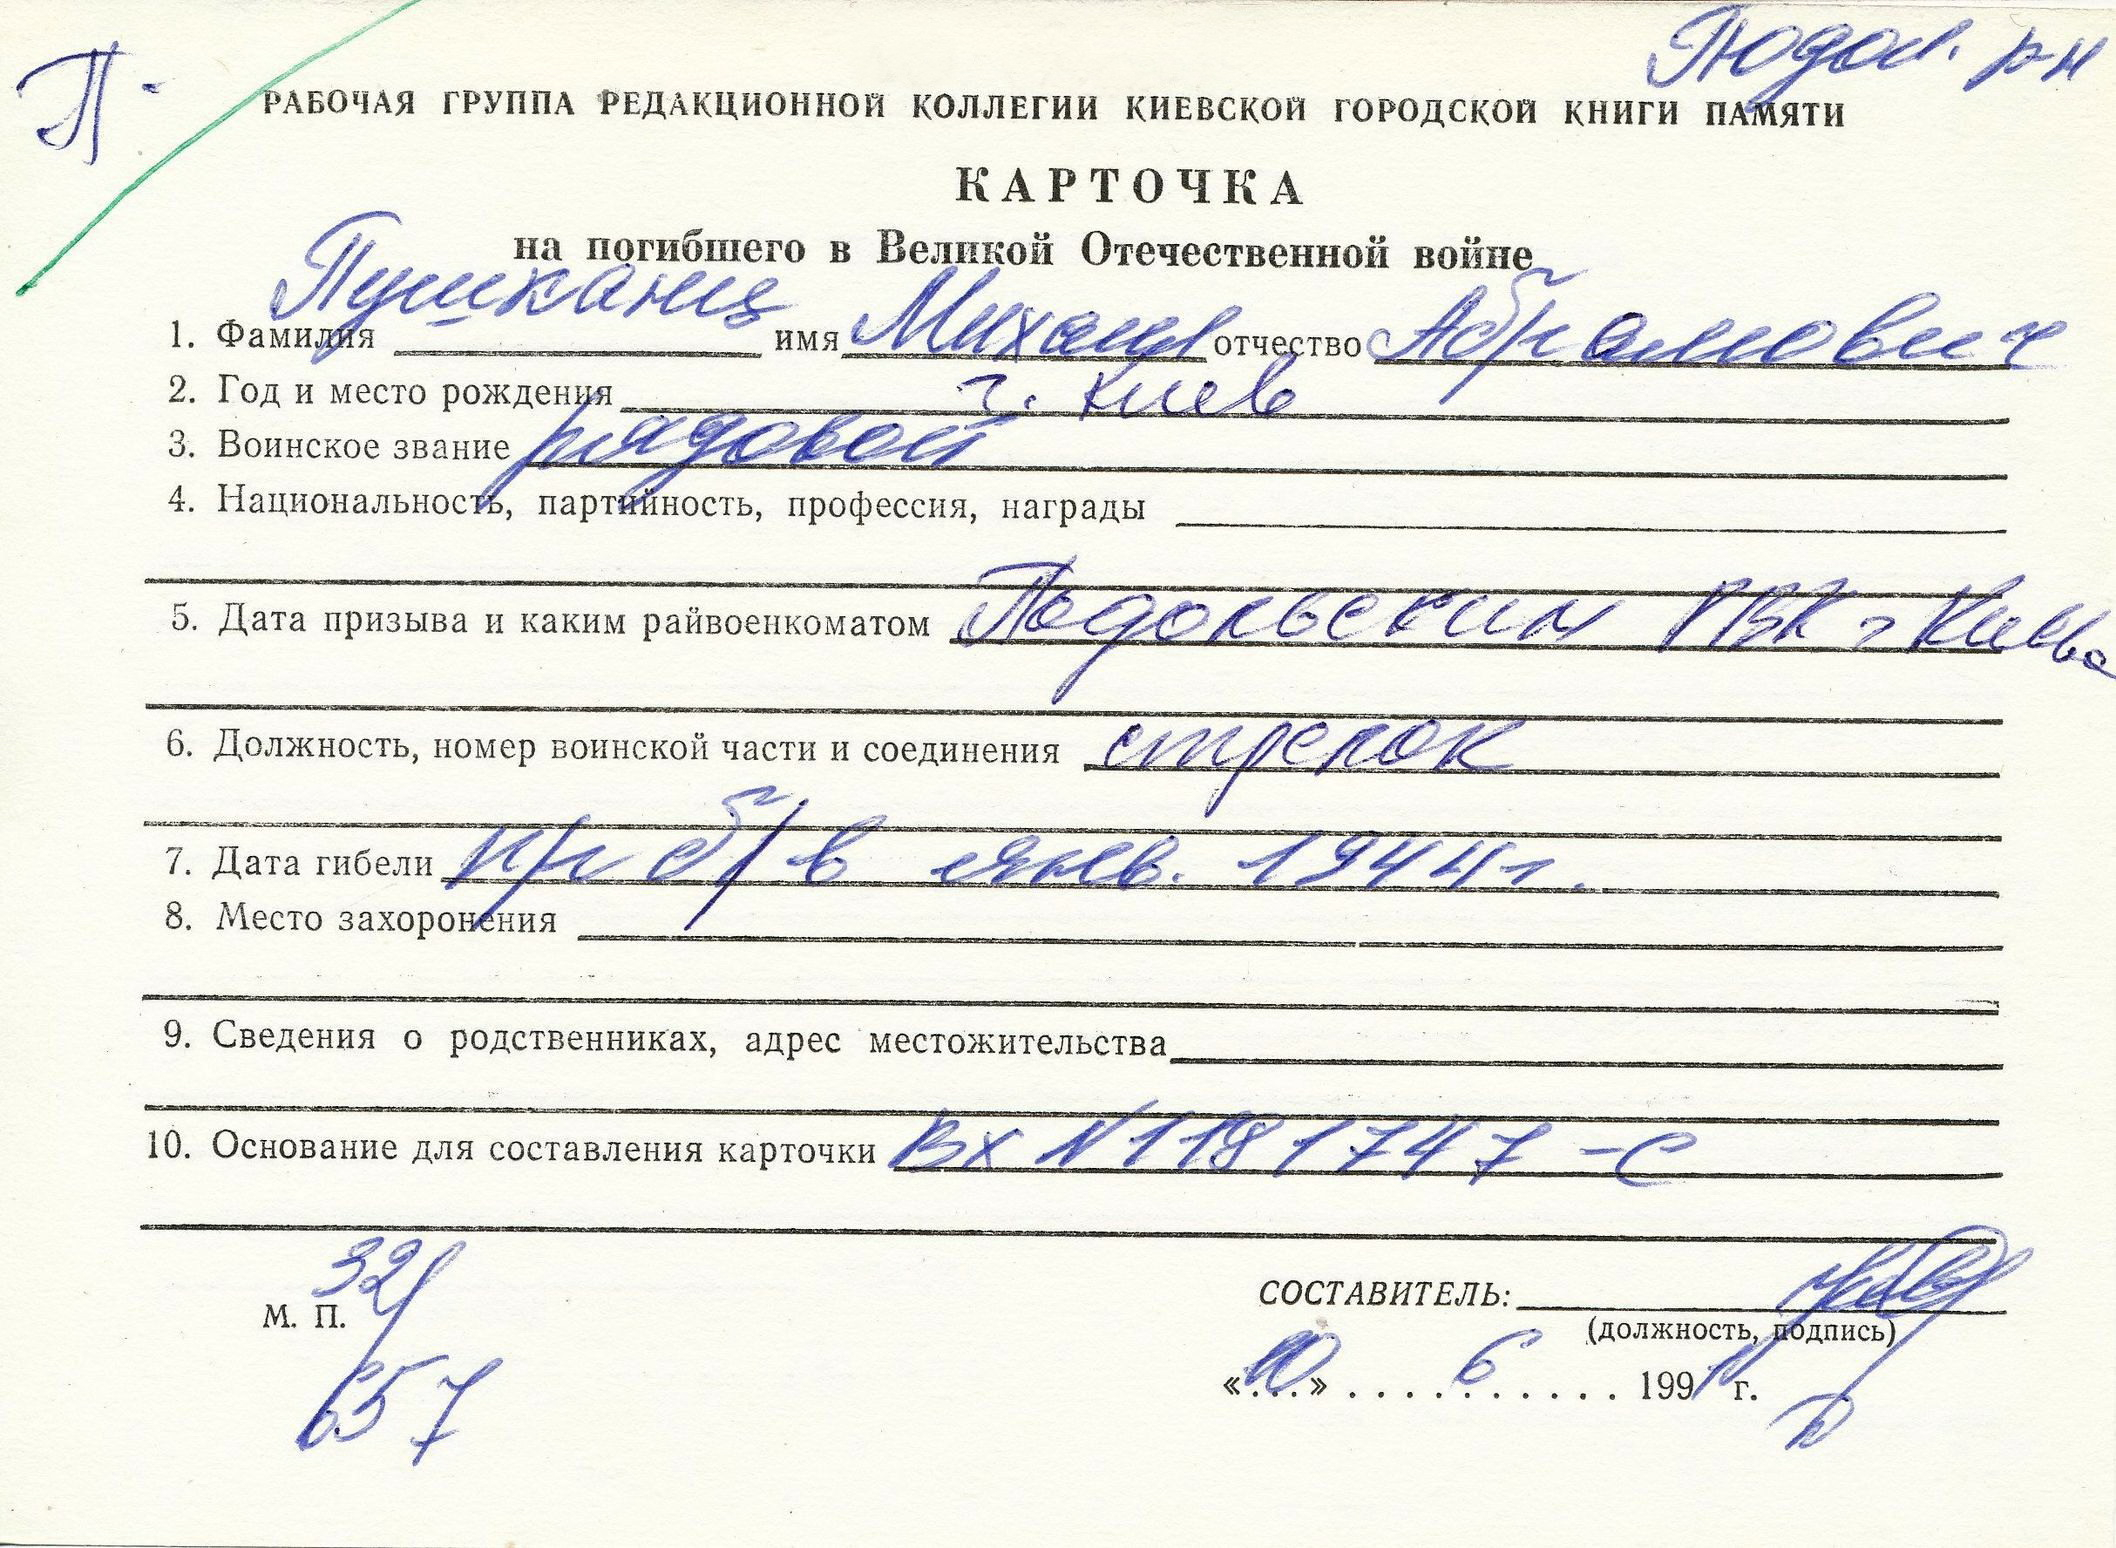 Подол. р-н
П.
РАБОЧАЯ ГРУППА РЕДАКЦИОННОЙ КОЛЛЕГИИ КИЕВСКОЙ ГОРОДСКОЙ КНИГИ ПАМЯТИ
КАРТОЧКА
на погибшего в Великой Отечественной войне
1. Фамилия Пушканц имя Михаил отчество Абрамович
2. Год и место рождения г. Киев
3. Воинское звание рядовой
4. Национальность, партийность, профессия, награды
5. Дата призыва и каким райвоенкоматом Подольским РВК г Киева
6. Должность, номер воинской части и соединения стрелок
7. Дата гибели пр б/в янв. 1944 г.
8. Место захоронения
9. Сведения о родственниках, адрес местожительства
10. Основание для составления карточки Вх N 1181747-с
32/
М. П.
657
СОСТАВИТЕЛЬ:
(должность, подпись)
«10» 6 1991 г.